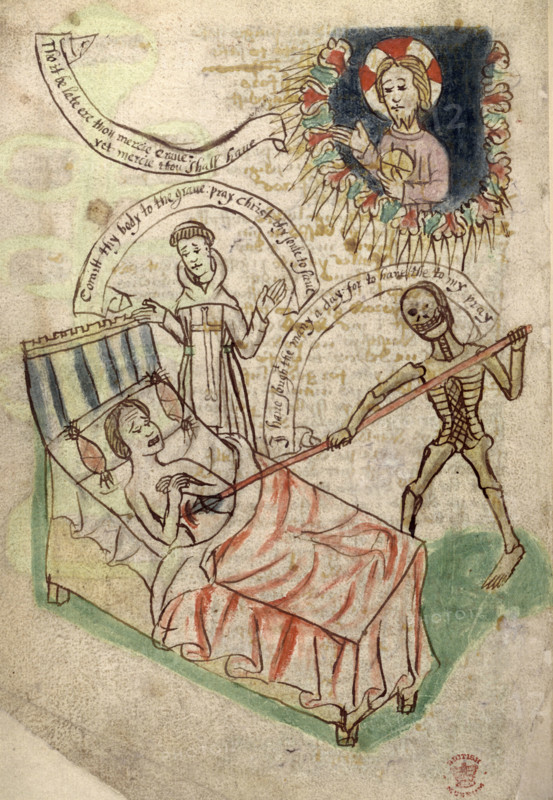 Tho it be late ere thou mercie craue
yet mercie thou shall haue
Comitt thy body to the graue pray christ thy soule to saue
I haue sought the many a day for to haue the to my pray
BRITISH
MUSEUM